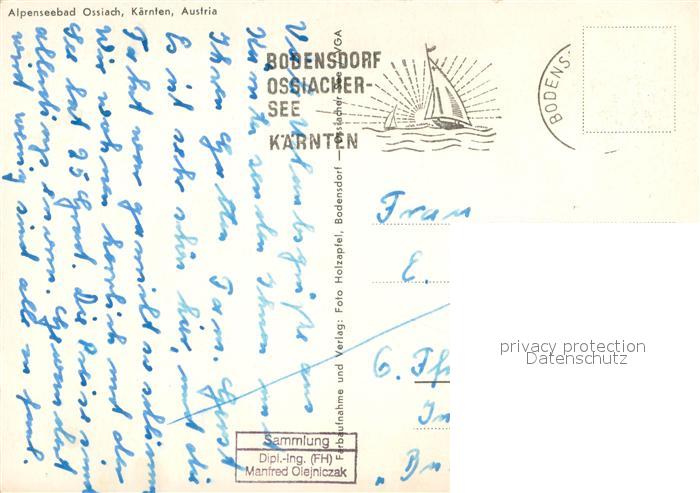 Alpenseebad Ossiach, Kärnten, Austria
BODENSDORF
OSSIACHER-
SEE
KÄRNTEN
BODENS
Farbaufnahme und Verlag: Foto Holzapfel, Bodensdorf — Ossiacher See — VGA
Urlaubsgrüße aus
Kärnten senden Ihnen u
Ihren Gatten Fam.
Es ist sehr schön hier, nur die
Fahrt war so schlimm
Wir wohnen herrlich und der
See hat 25 Grad. Die Preise sind
allerdings enorm.
wird wenig sind alle zu faul.
Frau
E.
6.
In
Sammlung
Dipl.-Ing. (FH)
Manfred Olejniczak
privacy protection
Datenschutz